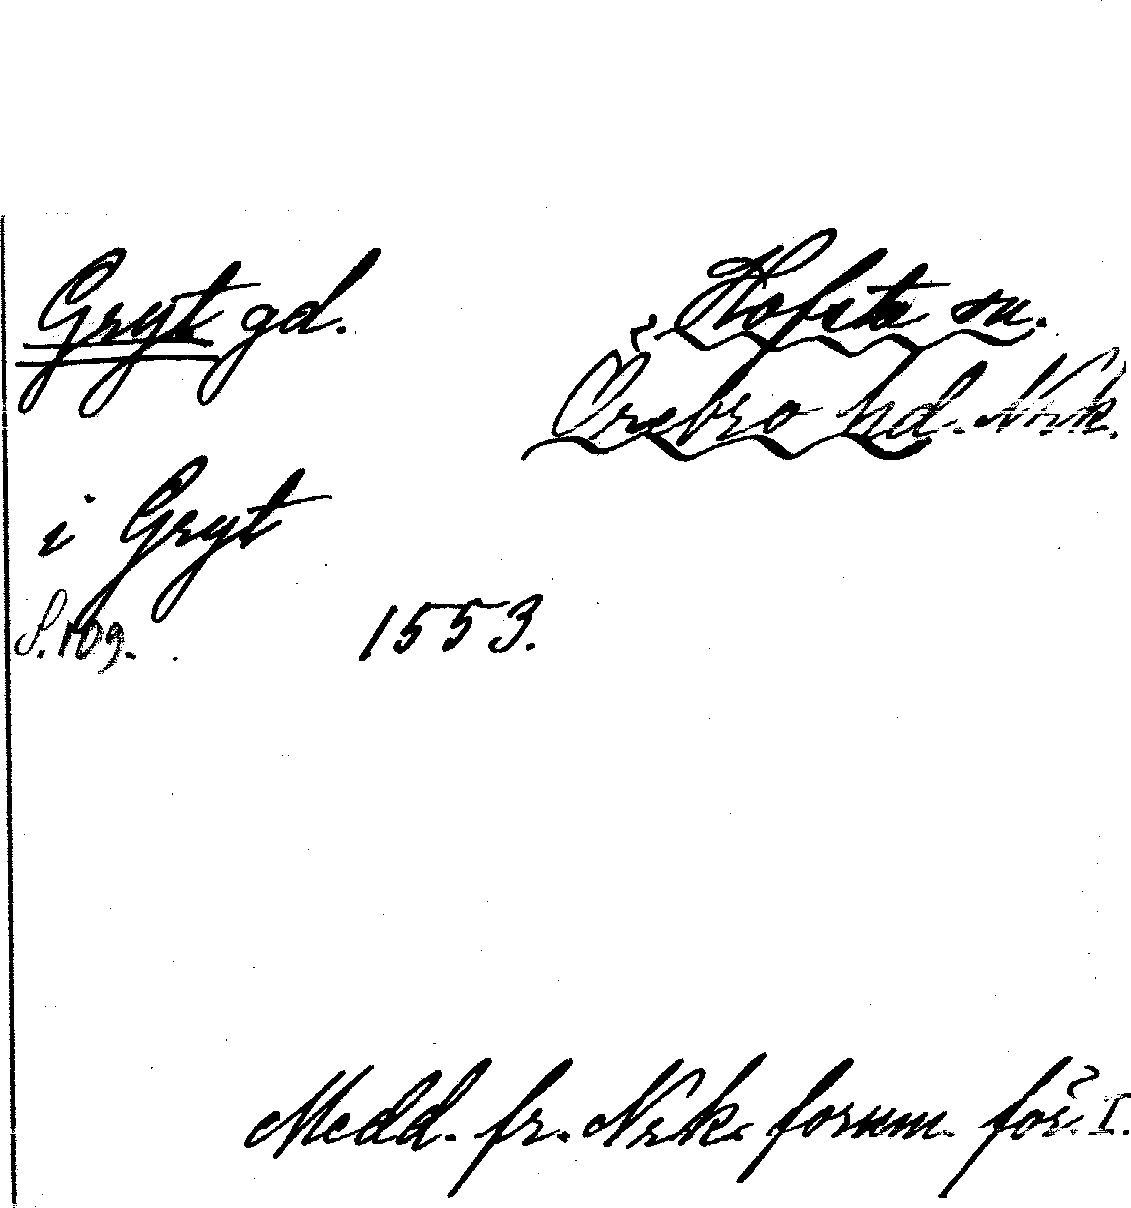 Gryt gd. Hofsta sn.
Örebro hd. Nrk.
i Gryt
S. 109. 1553.
Medd. fr. Nrk. fornm. för. I.